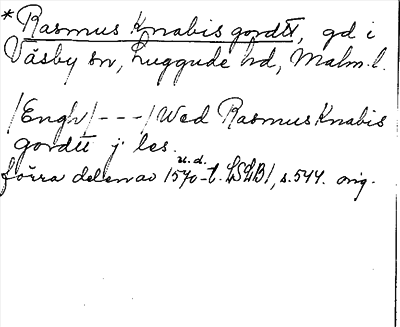 *Rasmus Knabis gordtt, gd i
Väsby sn, Luggude hd, Malm. l.
/Engh/ - - - / Wed Rasmus Knabis
gordtt j les.
u. d.
förra delen av 1570-t. LSLB1, s. 544. orig.